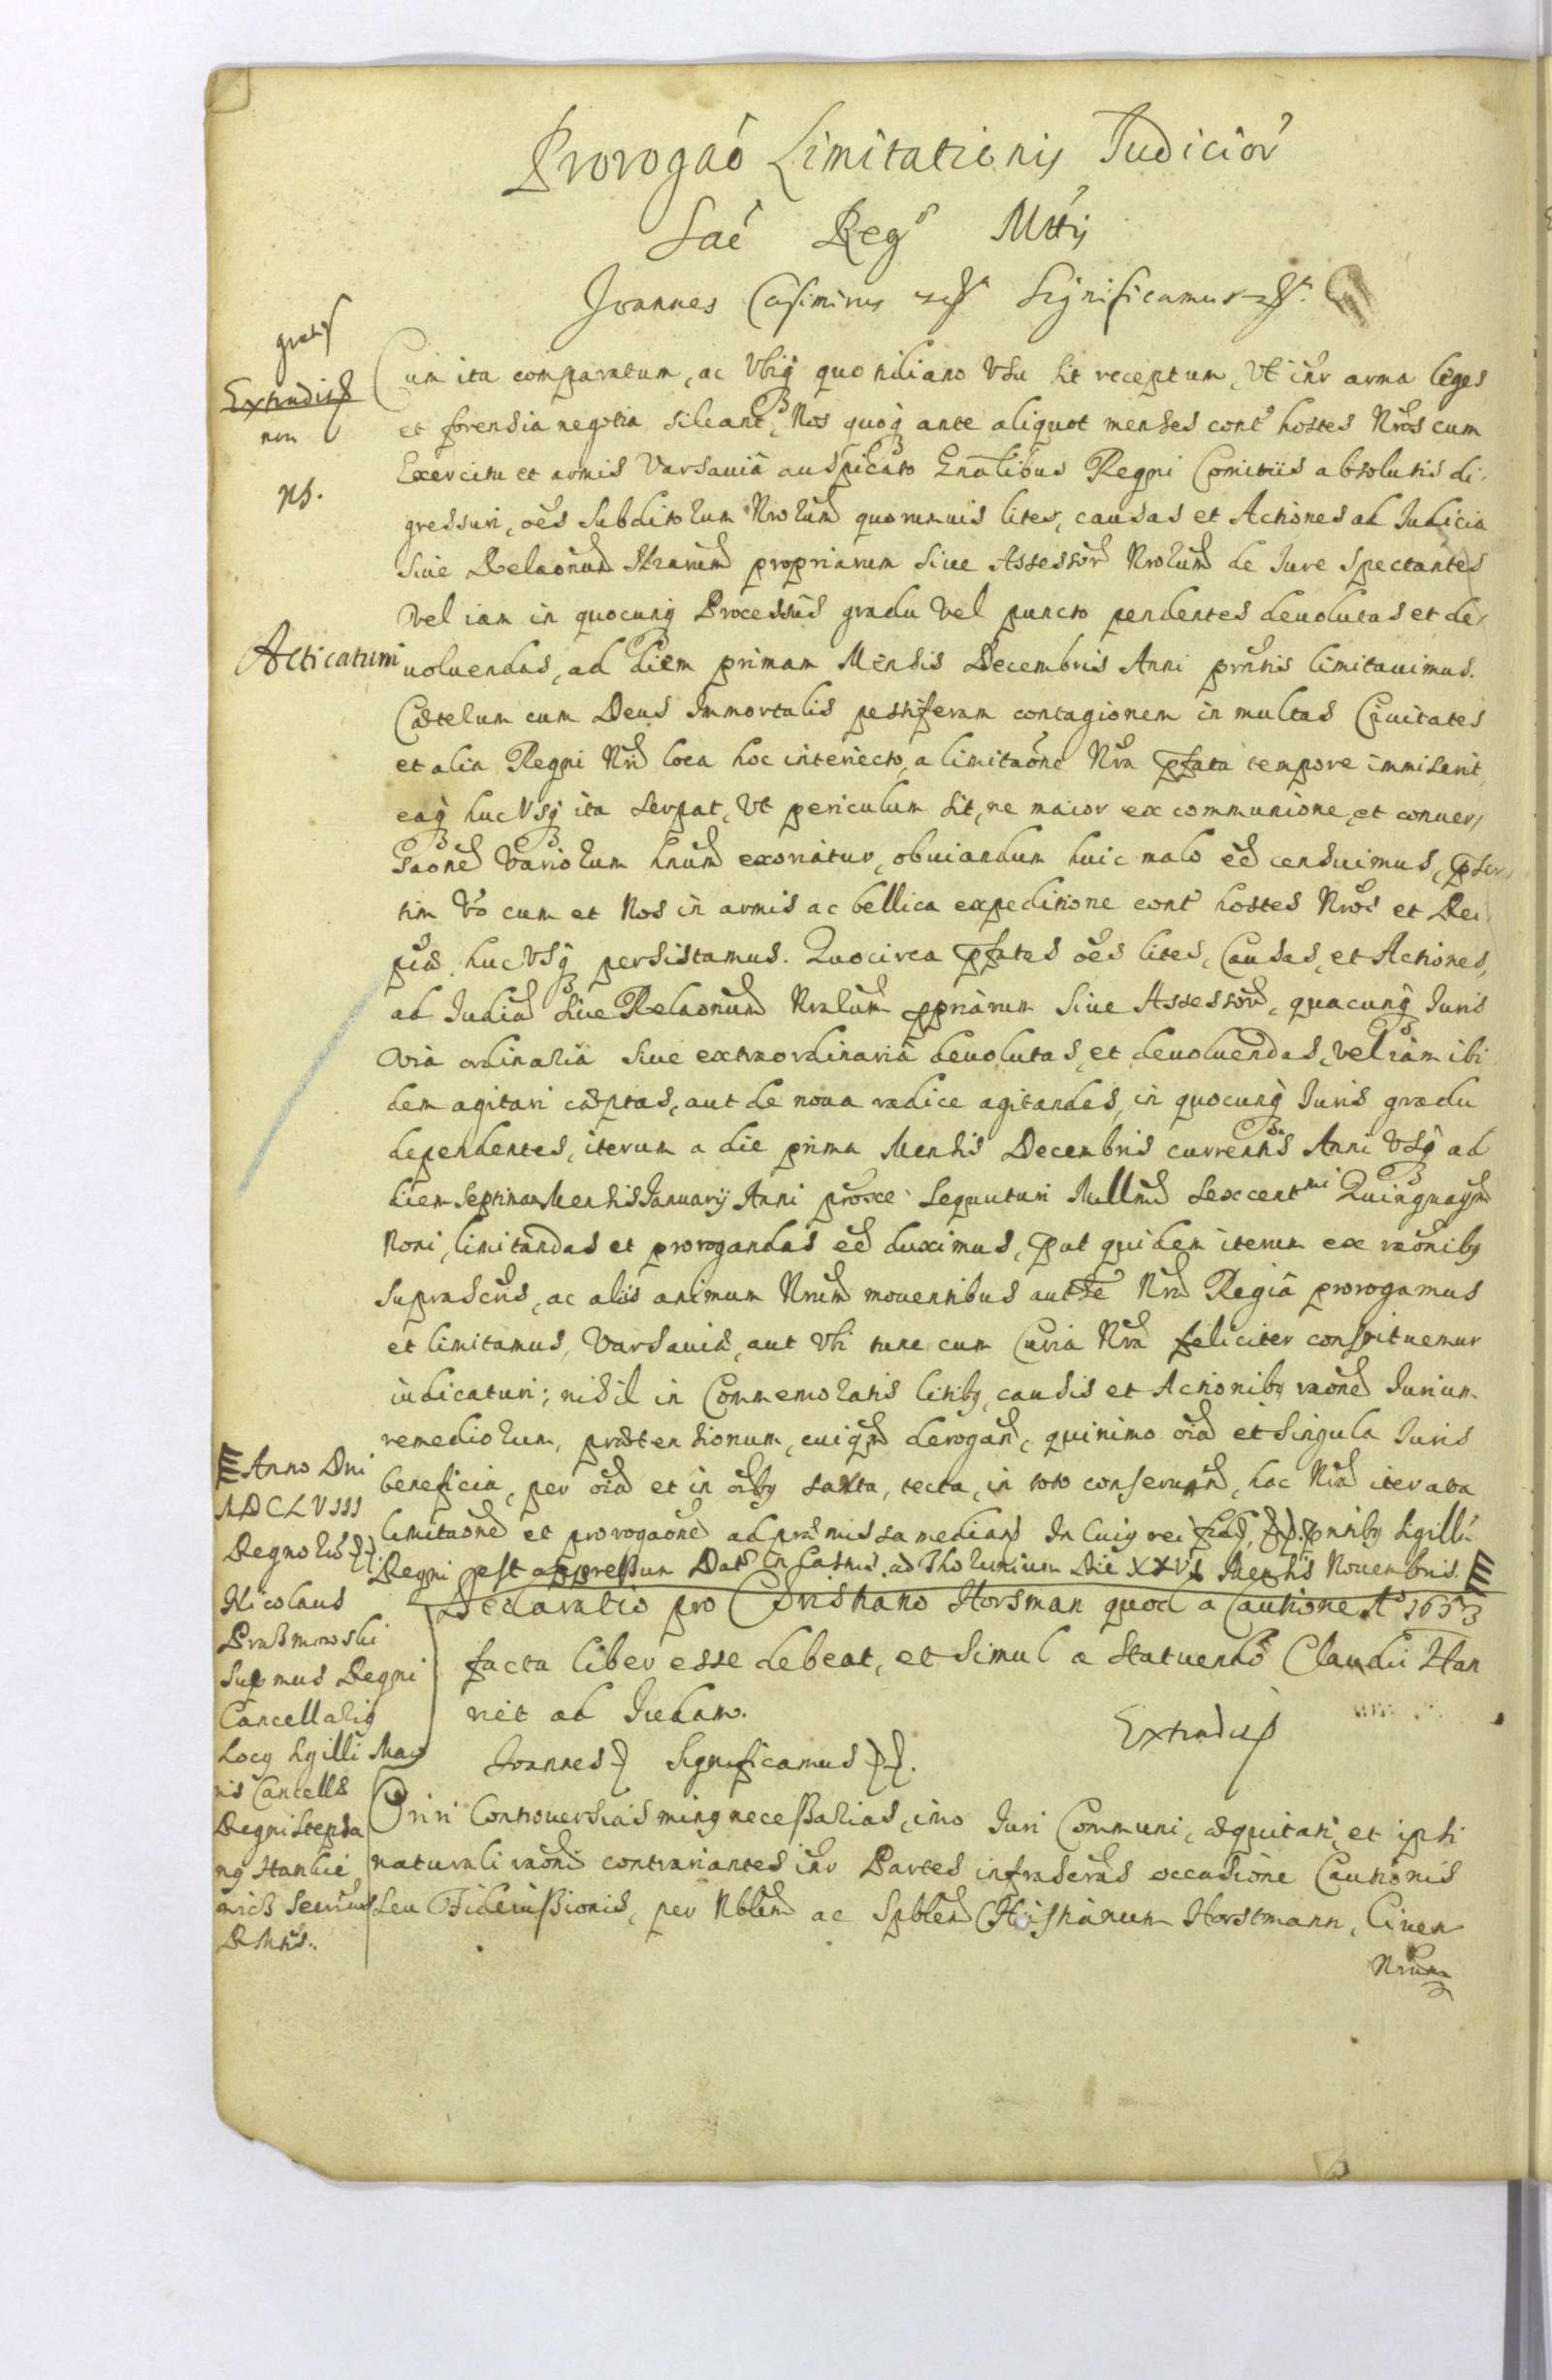 Prorogaõ Limitationis Judicior
Sae Reg Mttis
Joannes Casimirus Significamus
gratis
Extradit
non
ns.
Cum ita comparatum, ac Vbiq quotidiano Vsu sit receptum, Vt inr arma leges
et forensia negotia sileant, Nos quoq ante aliquot menses cont hostes Nros cum
Exercitu et armis Varsauiâ auspicato Gnalibus Regni Comitiis absolutis di
gressuri, oes Subditorum Nrorum quorumuis lites, causas et Actiones ad Judicia
Siue Relaonum Nrarum propriarum Siue Assessor Nrorum de Jure Spectantes
Vel iam in quocunq Processus gradu Vel puncto pendentes deuolutas et de
Acticatum
uoluendas, ad diem primam Mensis Decembris Anni prntis limitauimus.
Cæterum cum Deus Immortalis pestiferam contagionem in multas Ciuitates
et alia Regni Nri loca hoc interiecto, a limitaone Nra pfata tempore immiserit,
eaq huc Vsq ita serpat, Vt periculum sit, ne maior ex communione, et conuer
saone Variorum hnum exoriatur, obuiandum huic malo ee censuimus, pser
tim Vo cum et Nos in armis ac bellica expeditione cont hostes Nros et Rei
pub huc Vsq persistamus. Quocirca pfatas oes lites, Causas, et Actiones,
ad Judicia Siue Relaonum Nrarum ppriarum Siue Assessor, quacunq Juris
Via ordinaria Siue extraordinariâ deuolutas, et deuoluendas, vel iam ibi
dem agitari cæptas, aut de noua radice agitandas, in quocunq Juris gradu
dependentes, iterum a die prima Mensis Decembris currentis Anni Vsq ad
diem Septimam Mensis Januarij Anni proxe Sequuturi Millmi Sexcentmi Quinquagmi
Noni, limitandas et prorogandas ee duximus, put quidem iterum ex raonibq
Suprascris, ac aliis animum Nrum mouentibus autte Nra Regiâ prorogamus
et limitamus, Varsauiâ, aut Vbi tunc cum Curia Nra feliciter constituemur
iudicaturi; nihil in Commemoratis litibq, causis et Actionibq raone Jurium
remediorum, prætensionum, cuiqm derogan, quinimo oia et Singula Juris
beneficia, per oia et in oibq sarta, tecta, in toto conseruan, hac Nra iterata
limitaone et prorogaone ad præmissa median In Cuiq rei fid, pntibq Sgill
Regni est appressum Dat in Castris ad Thorunium Die XXVI Mensis Nouembris.
Anno Dni
MDCLVIII
Regnoru
Nicolaus
Praßmowski
Supmus Regni
Cancellariq
Locq Sgilli Mag
nis Cancells
Regni Stepha
nq Hankie
wicz Secrius
RMttis.
Declaratio pro Christiano Horsman quod a Cautione Ao 1653
facta liber esse debeat, et Simul a Statuendo Claudii Han
net ad Judam.
Extradit
Joannes Significamus
Oriri Controuersias minq neceßarias, imo Juri Communi, æquitati, et ipsi
naturali raoni contrariantes inr Partes infrascras occasione Cautionis
Seu Fideiußionis, per Nblem ac Spblem Christianum Horstmann, Ciuem
Nrum